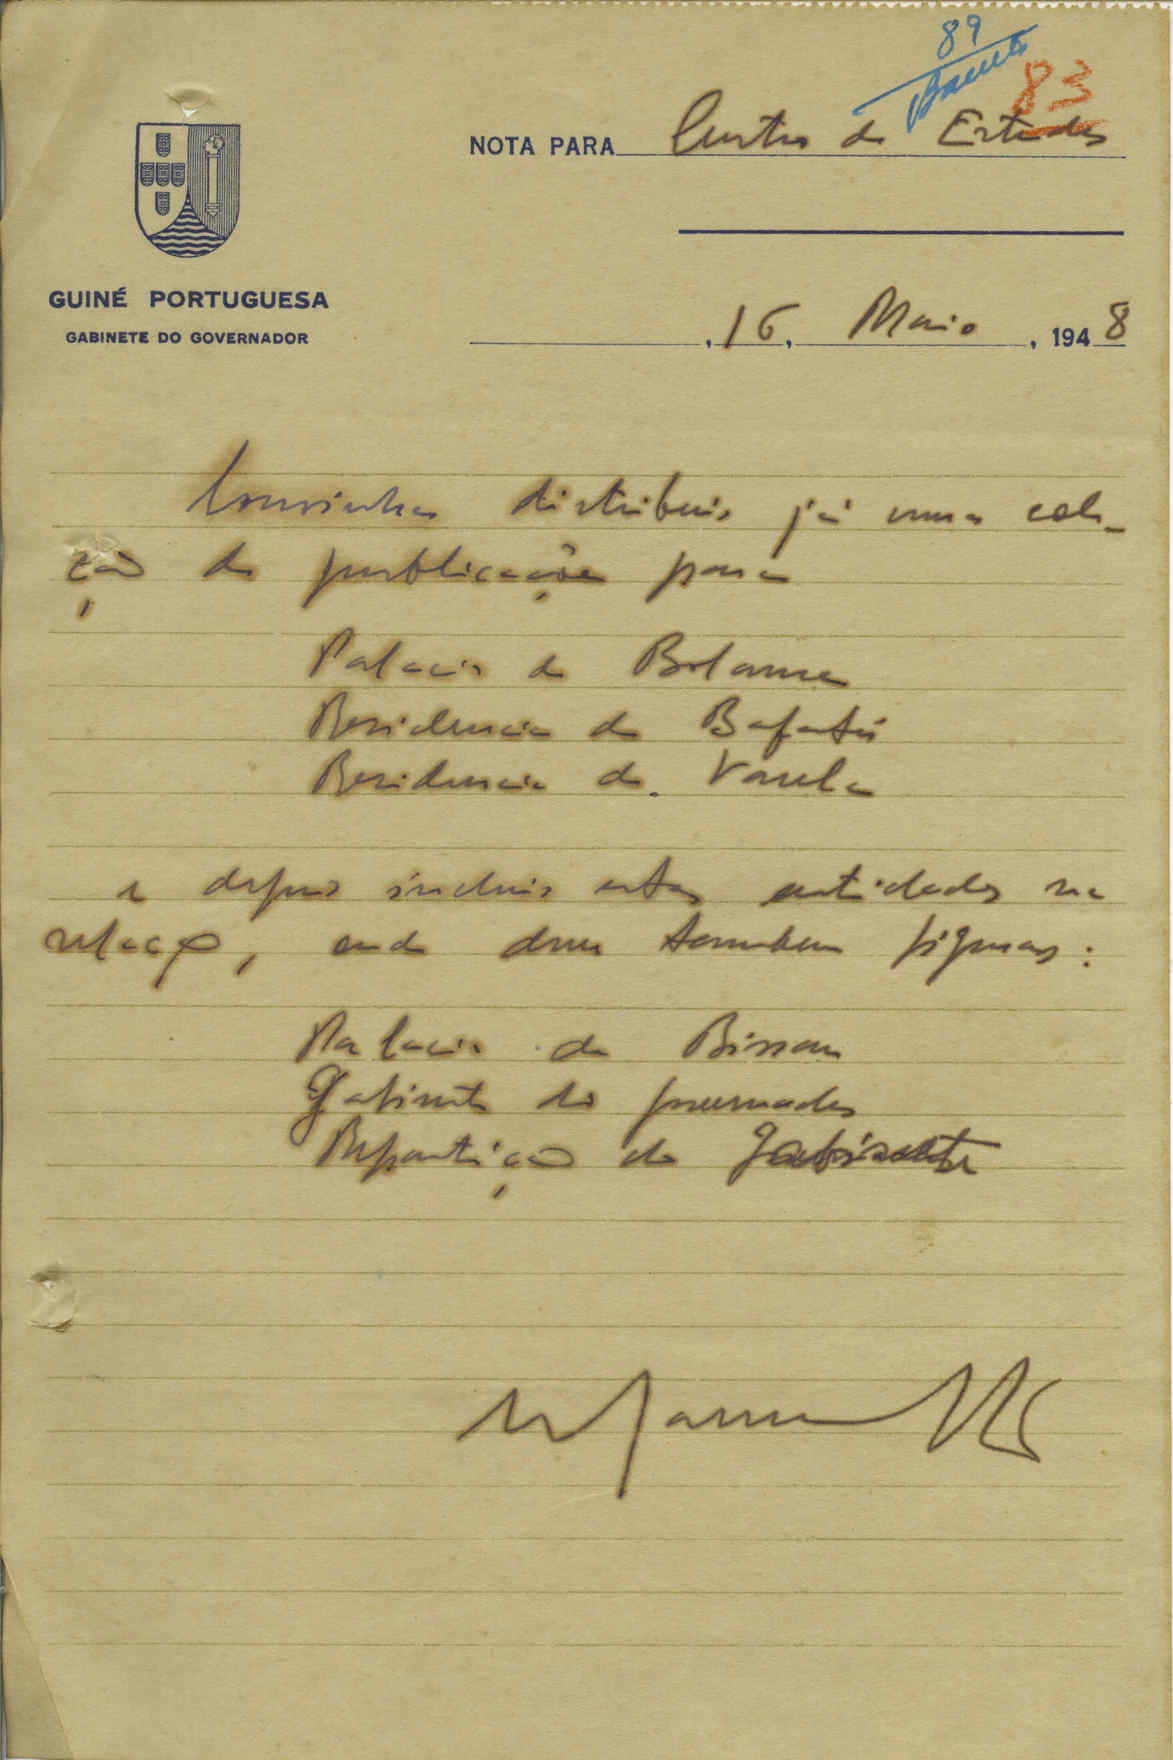 89
83
NOTA PARA Centro de Estudos
GUINÉ PORTUGUESA
GABINETE DO GOVERNADOR
, 16, Maio, 1948
Convinha distribuir já uma colec-
ção de publicações para
Palacio de Bolama
Residencia de Bafatá
Residencia de Varela
e depois incluir estas entidades na
relação, onde devem tambem figurar:
Palacio de Bissau
Gabinete do governador
Repartição do Gabinete